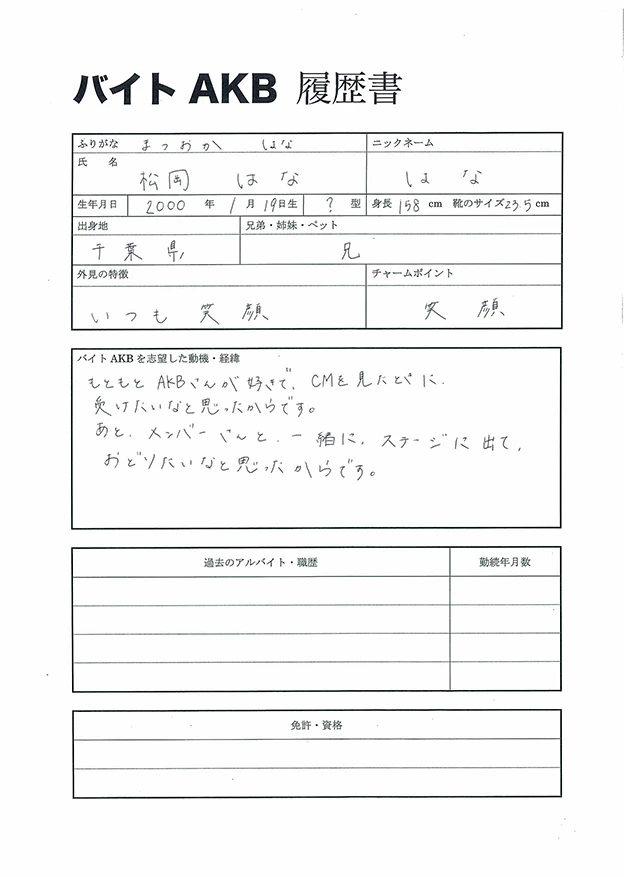 バイトAKB 履歴書
ふりがな まつおか はな ニックネーム
氏 名 松岡 はな はな
生年月日 2000 年 1 月 19日生 ? 型 身長 158 cm 靴のサイズ23.5 cm
出身地 兄弟・姉妹・ペット
千葉県 兄
外見の特徴 チャームポイント
いつも笑顔 笑顔
バイトAKBを志望した動機・経緯
もともとAKBさんが好きで、CMを見たときに、
受けたいなと思ったからです。
あと、メンバーさんと、一緒に、ステージに出て、
おどりたいなと思ったからです。
過去のアルバイト・職歴 勤続年月数
免許・資格